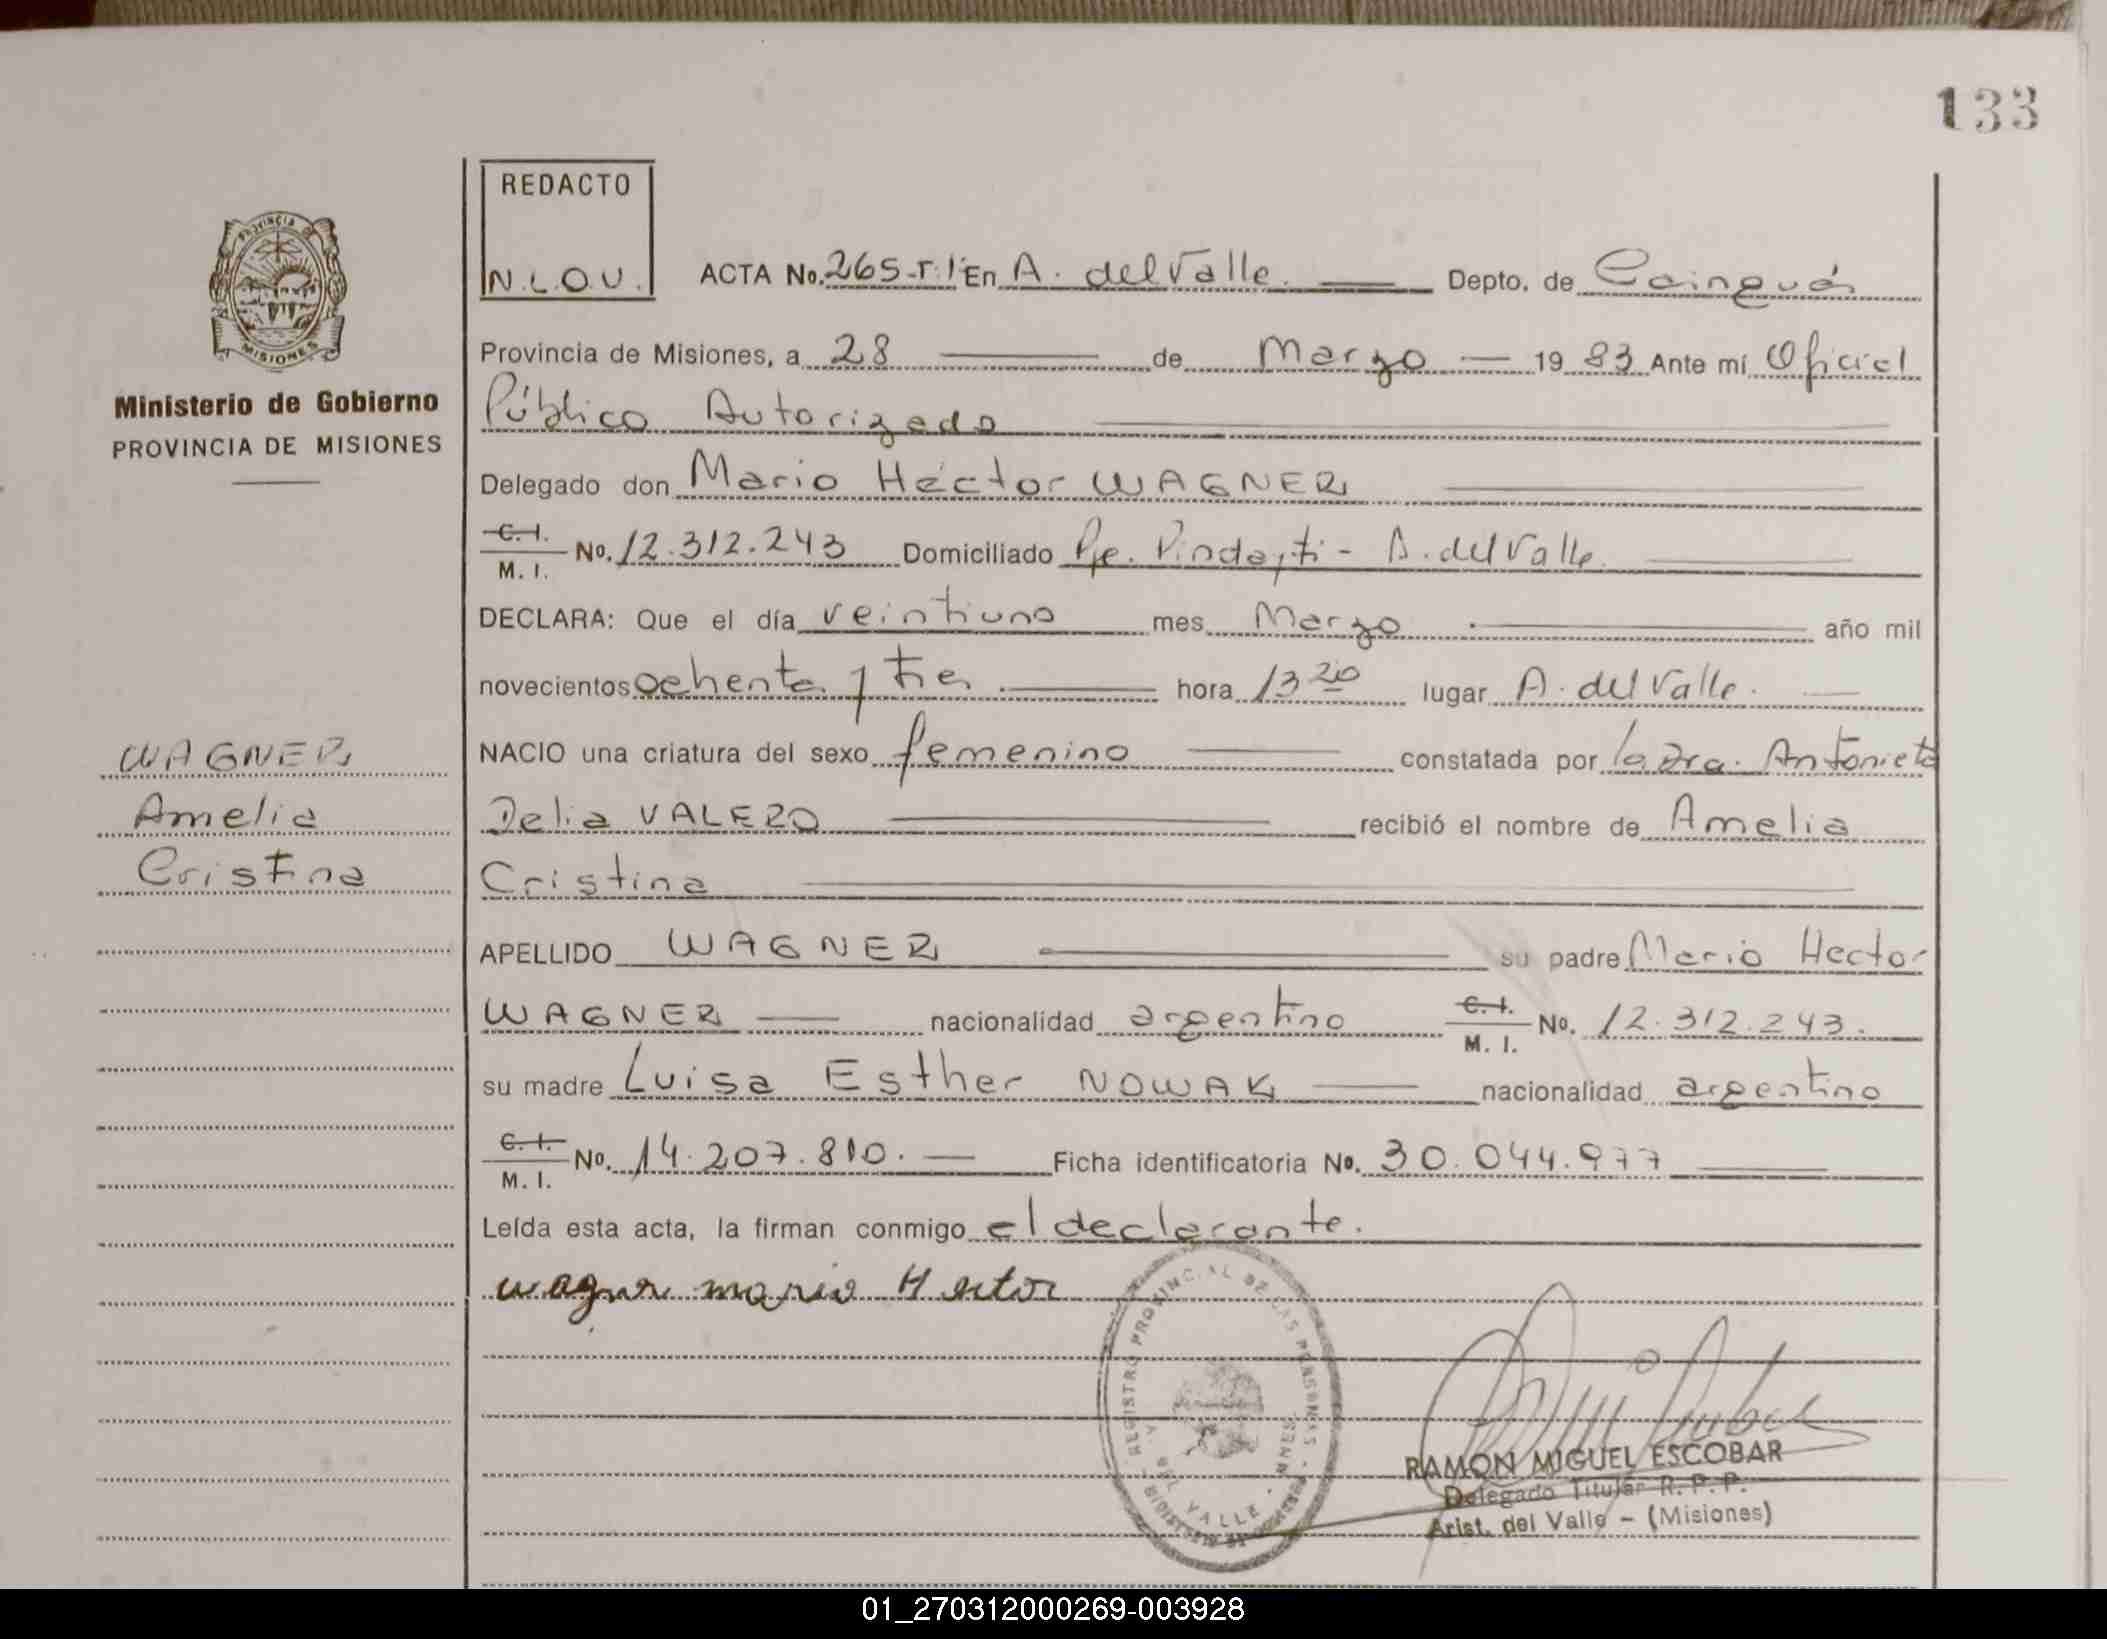 133
REDACTO
N.L.O.U.
ACTA No. 265-T.1º En A. del Valle. Depto. de Cainguás
Provincia de Misiones, a 28 de Marzo 1983 Ante mí Oficial
Público Autorizado
Delegado don Mario Héctor WAGNER
C.I. M.I. No. 12.312.243 Domiciliado Pje. Pindaytí - A. del Valle.
DECLARA: Que el día veintiuno mes Marzo año mil
novecientos ochenta y tres hora 13 20 lugar A. del Valle.
NACIO una criatura del sexo femenino constatada por la Dra. Antonieta
Delia VALERO recibió el nombre de Amelia
Cristina
APELLIDO WAGNER su padre Mario Hector
WAGNER nacionalidad argentino C.I. M.I. No. 12.312.243.
su madre Luisa Esther NOWAK nacionalidad argentino
C.I. M.I. No. 14.207.810. Ficha identificatoria No. 30.044.977
Leída esta acta, la firman conmigo el declarante.
Wagner Mario Hector
PROVINCIA
MISIONES
Ministerio de Gobierno
PROVINCIA DE MISIONES
WAGNER
Amelia
Cristina
REGISTRO PROVINCIAL DE LAS PERSONAS
DEL VALLE
RAMON MIGUEL ESCOBAR
Delegado Titular R. P. P.
Arist. del Valle - (Misiones)
01_270312000269-003928